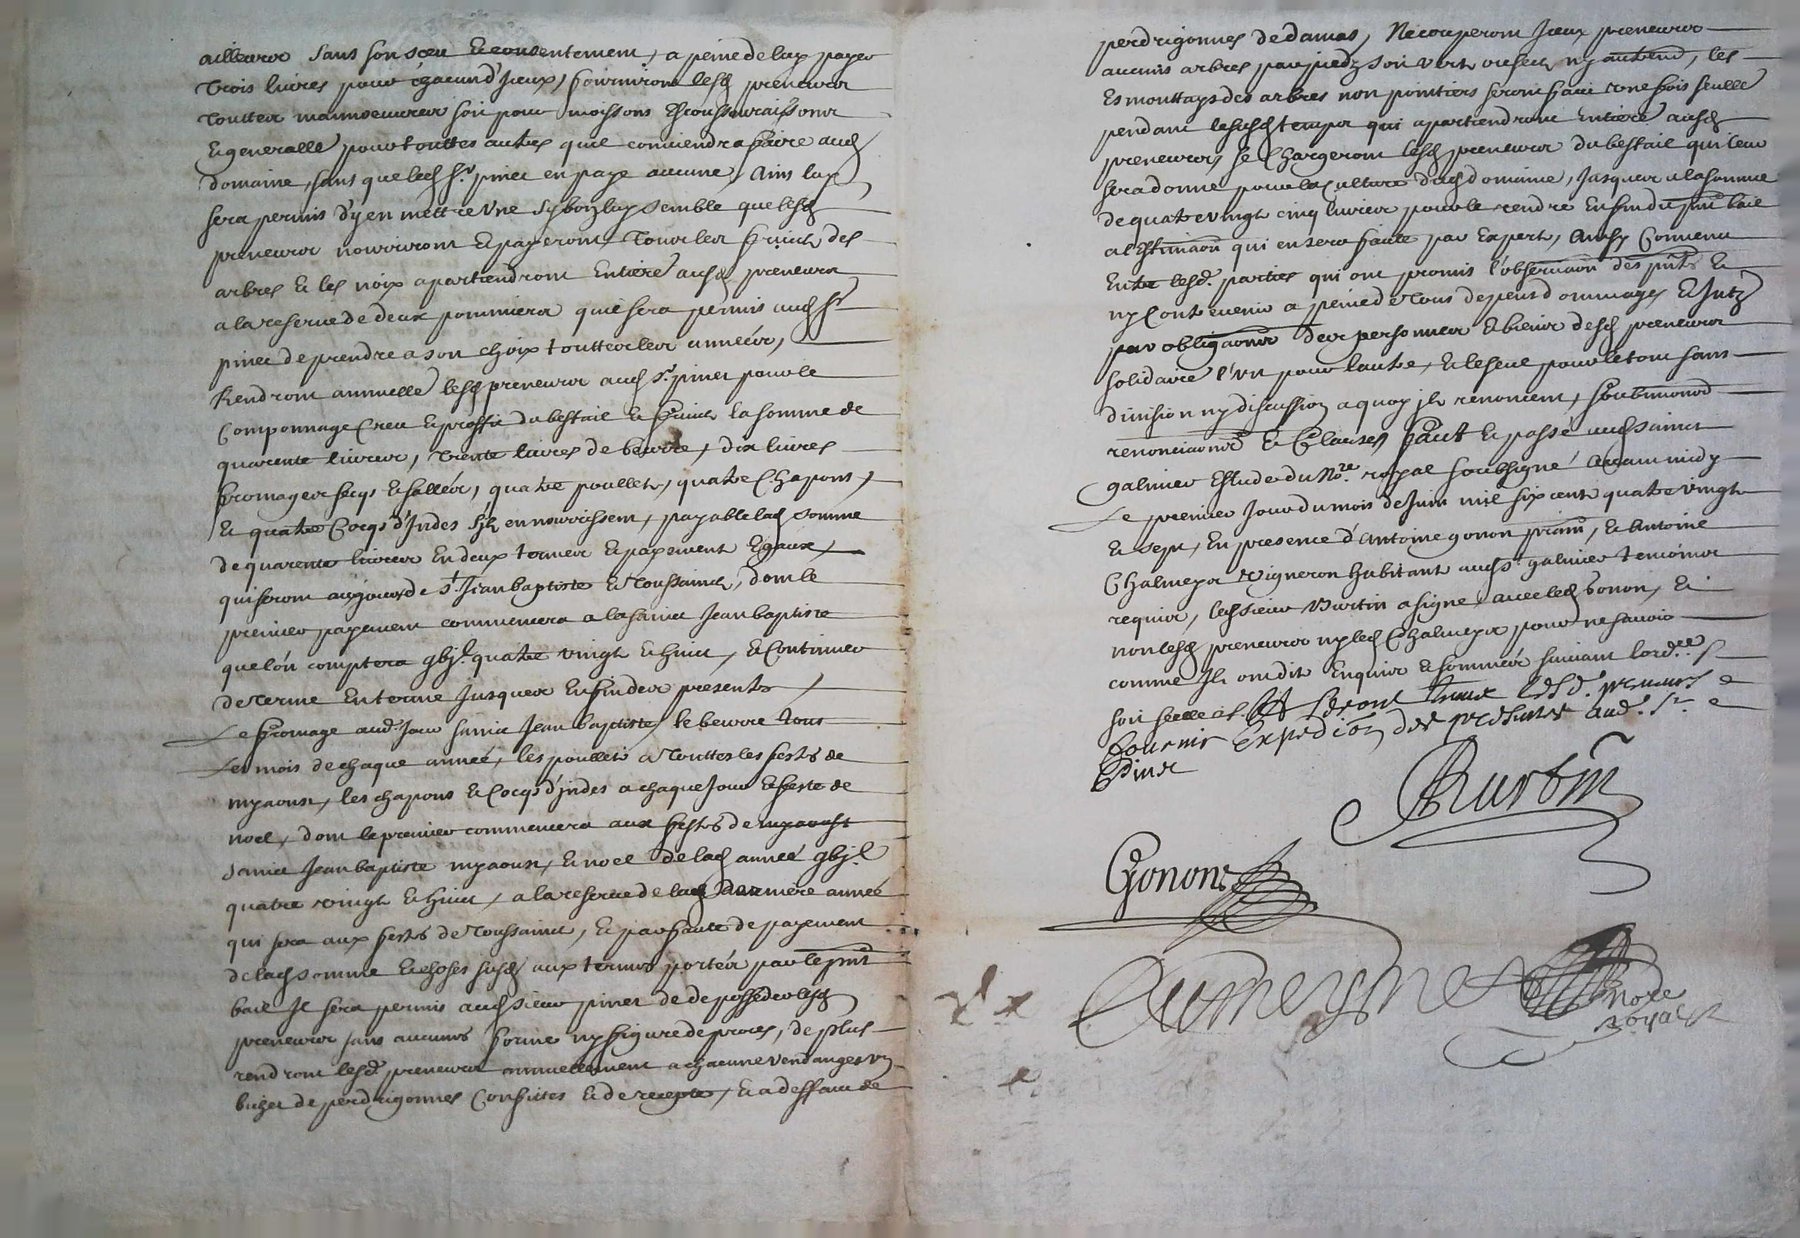 ailleurs sans son sceu & consentement, a peine de luy payer
trois livres pour chacun d'Iceux, fourniront lesd preneurs
touttes mannoeuvres soit pour moissons
& generalle pour touttes autres quil conviendra faire aud
domaine, sans que led Sr pinet en paye aucune, Ains luy
sera permis d'y en mettre Une sy bon luy semble que lesd
preneurs nourriront & payeront, Tous les fruicts des
arbres & les noix apartiendront Entiere ausd preneurs
a la reserve de deux pommiers quil sera permis aud Sr
pinet de prendre a son choix touttes les années,
Rendront annuelle lesd preneurs aud Sr pinet pour le
Componnage Creu & proffit du bestail & fruict la somme de
quarente livres, trente livres de beurre, dix livres
fromages secqs & salléz, quatre poullets, quatre Chapons,
& quatre Cocqs d'Indes sils en nourrissent, payable lad somme
de quarente livres En deux termes & payement Egaux,
qui seront aux jours de St Jean baptiste & Toussainct, dont le
premier payement commencera a la sainct Jean baptiste
que lón comptera gbjc quatre vingt & huict, & Continuer
de terme En terme Jusques En fin des présentes,
Le fromage aud Jour sainct Jean baptiste, le beurre tous
Les mois de chaque année, les poullets a Touttes les festes de
myaoust, les chapons & Cocqs d'jndes a chaque Jour & feste de
noel, dont le premier commencera aux festes de myaoust
sainct Jean baptiste myaoust, & noel de lad année gbjc
quatre vingt & huict, a la reserve de lad derniere année
qui sera aux festes de Toussainct, & par faute de payement
de lad somme & choses susd aux termes portéz par le pnt
bail Il sera permis aud sieur pinet de depossedér lesd
preneurs sans aucunes forme ny figure de procés, de plus
rendront lesd preneurs annuellement a chacune vendanges un
bichet de perdrigonnes Confittes & de recepte, & a deffaut de
perdrigonnes de damas, Ne couperont Iceux preneurs
aucuns arbres par pied soit vert ou secq ny autrement, les
Esmouttays des arbres non fruitiers seront faict une fois seulle
pendant lesusd temps qui apartiendront Entiere ausd
preneurs, se Chargeront lesd preneurs du bestail qui leur
sera donne pour la Culture dud domaine, Jusques a la somme
de quatre vingt cinq livres pour le rendre En fin du pnt bail
a l'Estimaon qui en sera faite par Expert, Ainsy Convenu
Entre lesd. parties qui ont promis l'observaon des pntes &
ny Contrevenir a peine de tous despens dommages & Intz
par obligaons des personnes & biens desd preneurs
solidaire l'Un pour l'autre, & le seul pour le tout sans
division ny discussion a quoy jls renoncent, soubmissions
renonciaons & Clauses, faict & passé aud sainct
galmier Estude du Nore royal soubsigné avant midy
Le premier Jour du mois de Juin mil six cent quatre vingt
& sept, En presence d'Antoine gonon pratn, & Antoine
Chalmeyer Vigneron habitant aud St galmier temoins
requis, led sieur Burtin a signe avec led Gonon, &
non lesd preneurs ny led Chalmeyer pour ne savoir
comme Ils ont dit Enquis & sommés suivant lordce
soit scelle &c. Et seront tenus lesd. preneurs
fournir Expedion des presentes aud. Sr
Pinet
Burtin
Gonon
nore
Royal